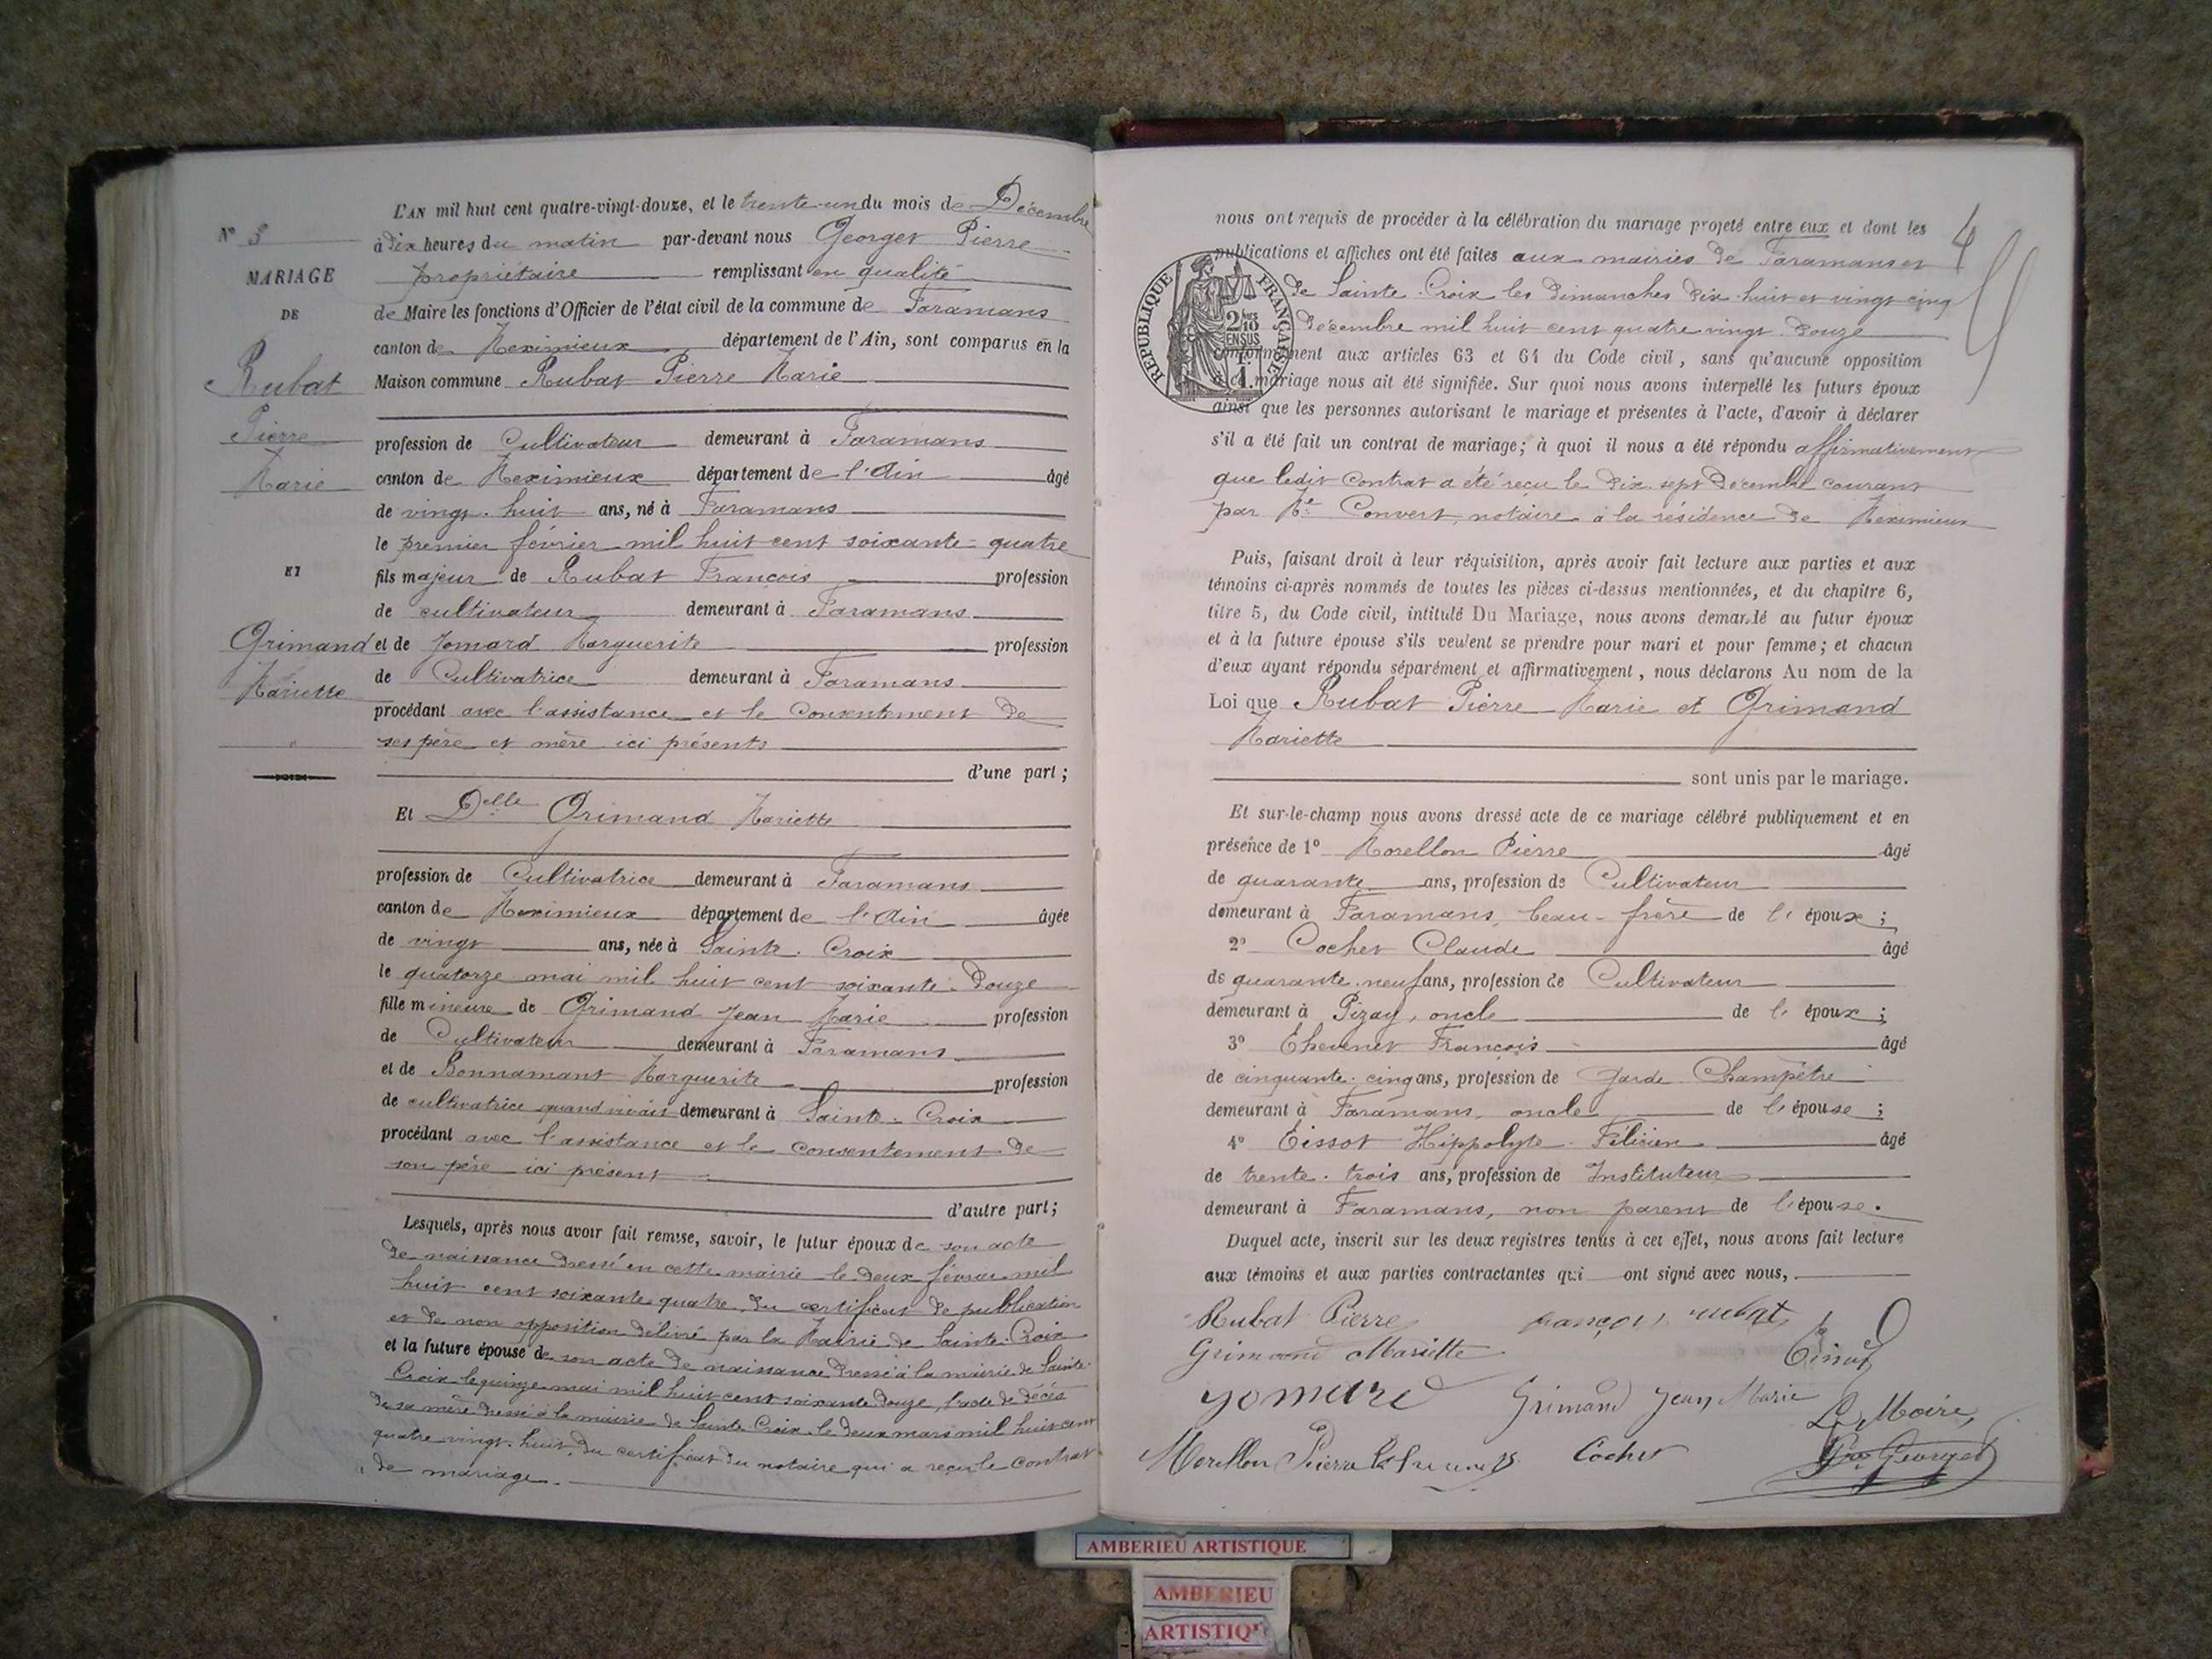 N° 3
MARIAGE
DE
Rubat
Pierre
Marie
ET
Grimand
Mariette
L'AN mil huit cent quatre-vingt-douze, et le trente-un du mois de Décembre
à dix heures du matin par-devant nous Georget Pierre
propriétaire remplissant en qualité
de Maire les fonctions d'Officier de l'état civil de la commune de Faramans
canton de Meximieux département de l'Ain, sont comparus en la
Maison commune Rubat Pierre Marie
profession de Cultivateur demeurant à Faramans
canton de Meximieux département de l'Ain âgé
de vingt-huit ans, né à Faramans
le premier février mil huit cent soixante-quatre
fils majeur de Rubat François profession
de cultivateur demeurant à Faramans
et de Jomard Marguerite profession
de Cultivatrice demeurant à Faramans
procédant avec l'assistance et le consentement de
ses père et mère ici présents
d'une part;
Et Delle Grimand Mariette
profession de Cultivatrice demeurant à Faramans
canton de Meximieux département de l'Ain âgée
de vingt ans, née à Sainte-Croix
le quatorze mai mil huit cent soixante-douze
fille mineure de Grimand Jean Marie profession
de Cultivateur demeurant à Faramans
et de Bonnamant Marguerite profession
de cultivatrice quand vivait demeurant à Sainte-Croix
procédant avec l'assistance et le consentement de
son père ici présent
d'autre part;
Lesquels, après nous avoir fait remise, savoir, le futur époux de son acte
de naissance dressé en cette mairie le deux février mil
huit cent soixante quatre, du certificat de publication
et de non opposition délivré par la Mairie de Sainte-Croix
et la future épouse de son acte de naissance dressé à la mairie de Sainte-
Croix le quinze mai mil huit cent soixante douze, l'acte de décès
de sa mère dressé à la mairie de Sainte Croix le deux mars mil huit cent
quatre vingt-huit, du certificat du notaire qui a reçu le contrat
de mariage.
4
nous ont requis de procéder à la célébration du mariage projeté entre eux et dont les
publications et affiches ont été faites aux mairies de Faramans et
de Sainte-Croix les Dimanches dix-huit et vingt-cinq
décembre mil huit cent quatre vingt-douze
conformément aux articles 63 et 64 du Code civil, sans qu'aucune opposition
à ce mariage nous ait été signifiée. Sur quoi nous avons interpellé les futurs époux
ainsi que les personnes autorisant le mariage et présentes à l'acte, d'avoir à déclarer
s'il a été fait un contrat de mariage; à quoi il nous a été répondu affirmativement
que ledit contrat a été reçu le dix-sept Décembre courant
par Me Convert, notaire à la résidence de Meximieux
RÉPUBLIQUE FRANÇAISE
2/10
EN SUS
Puis, faisant droit à leur réquisition, après avoir fait lecture aux parties et aux
témoins ci-après nommés de toutes les pièces ci-dessus mentionnées, et du chapitre 6,
titre 5, du Code civil, intitulé Du Mariage, nous avons demandé au futur époux
et à la future épouse s'ils veulent se prendre pour mari et pour femme; et chacun
d'eux ayant répondu séparément et affirmativement, nous déclarons Au nom de la
Loi que Rubat Pierre Marie et Grimand
Mariette
sont unis par le mariage.
Et sur-le-champ nous avons dressé acte de ce mariage célébré publiquement et en
présence de 1° Morellon Pierre âgé
de quarante ans, profession de Cultivateur
demeurant à Faramans, beau-frère de l'époux;
2° Cochet Claude âgé
de quarante-neuf ans, profession de Cultivateur
demeurant à Pizay, oncle de l'époux;
3° Thevenet François âgé
de cinquante-cinq ans, profession de Garde Champêtre
demeurant à Faramans, oncle de l'épouse;
4° Hippolyte Félicien âgé
de trente-trois ans, profession de Instituteur
demeurant à Faramans, non parent de l'épouse.
Duquel acte, inscrit sur les deux registres tenus à cet effet, nous avons fait lecture
aux témoins et aux parties contractantes qui ont signé avec nous,
Rubat Pierre françois rubat
Grimand Mariette
Jomard Grimand Jean Marie Le Maire,
Morellon Pierre Cochet Georget
AMBERIEU ARTISTIQUE
AMBERIEU
ARTISTIQUE